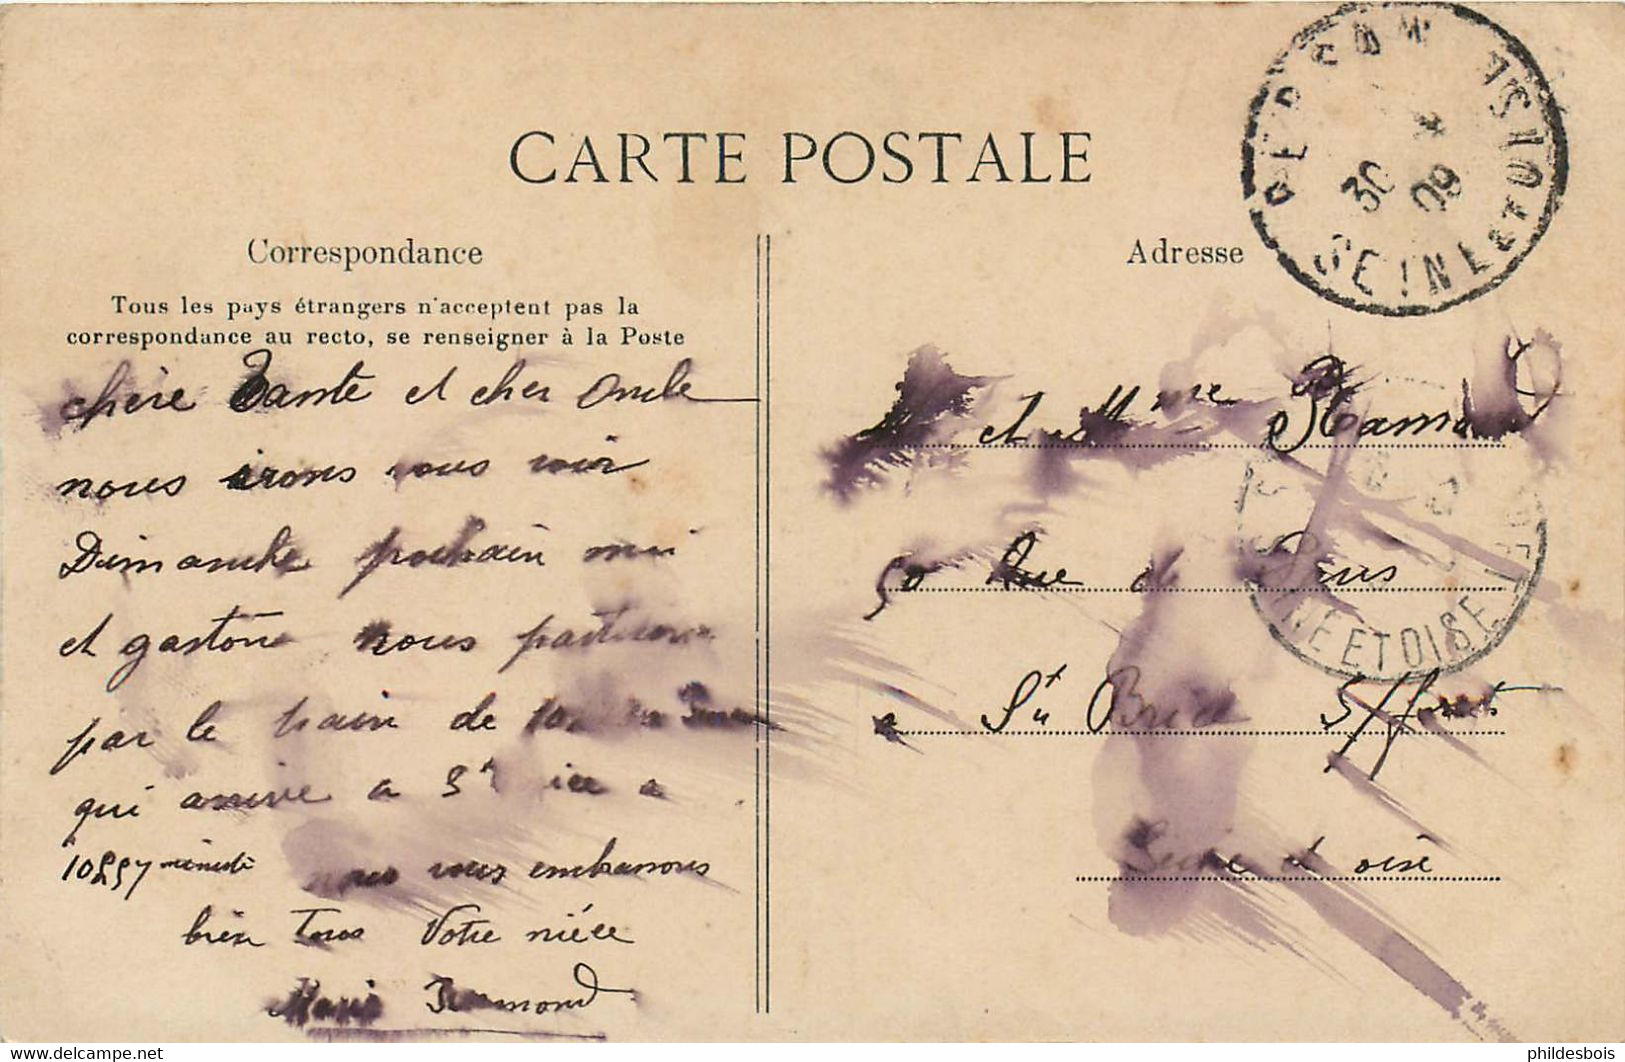 CARTE POSTALE
Correspondance
Tous les pays étrangers n'acceptent pas la
correspondance au recto, se renseigner à la Poste
chère Tante et cher Oncle
nous irons vous voir
Dimanche prochain moi
et gaston nous partirons
par le train de
qui arrive a St ice a
10h57 minute nous vous embrassons
bien Tous Votre nièce
Marie
Adresse
et Mme
50 Rue de Paris
a St Brice s/ forets
Seine et oise
30 09
SEINE & OISE
NE ET OISE
phildesbois